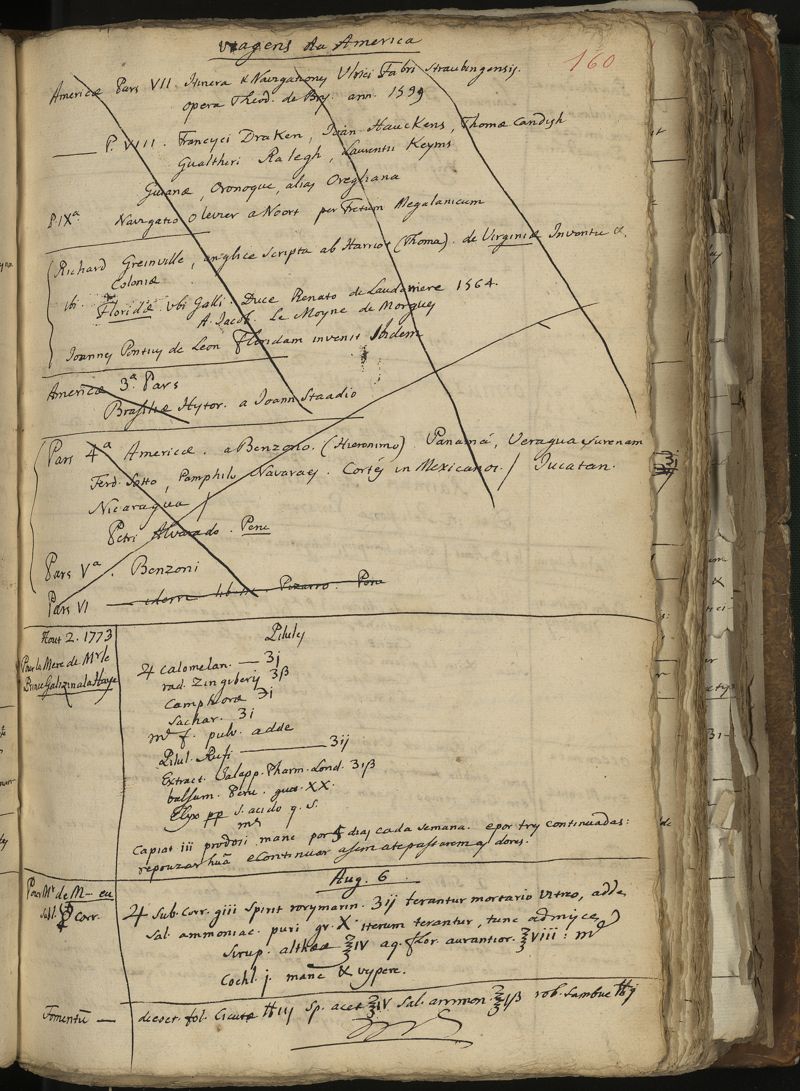 viagens da America
160
Americæ Pars VII Itinera & Navigationes Ulrici Fabri Straubingensis.
opera Theod. de Bry. ann. 1599
— P. VIII. Francisci Draken, Joan Hauckens, Thomæ Candish
Gualtheri Ralegh, Laurentii Keyms
Guianæ, Oronoque, alias Oregliana
P. IXª. Navigatio Olevier a Noort per Fretum Megalanicum
Richard Greinville, anglice scripta ab Harriot (Thoma). de Virginiæ Inventu &
Coloniæ
ibi Floridiæ ubi Galli. Duce Renato de Laudonniere 1564.
A. Jacob. Le Moyne de Morgues
Joannes Pontius de Leon Floridam invenit Ibidem
Americæ 3ª. Pars
Brasiliæ Hystor. a Joann Staadio
Pars 4ª Americæ. a Benzono. (Hieronimo). Panamá, Veragua Surenam
Ferd. Sotto, Pamphilo Navaraes. Cortés in Mexicanos. / Jucatan.
Nicaragua /
Petri Alvarado. Peru
Pars Vª. Benzoni
Pars VI Pizarro. Peru
Aout 2. 1773
Pour la Mere de Mr le
Prince Galizin a la Haye
Pilules
♃ Calomelan. — ʒj
rad. Zingiberis ʒβ
Camphoræ ℈i
Sachar. ʒi
m. f. pulv. adde
Pilul. Rufi — ʒij
Extract. Jalapp. Pharm. Lond. ʒiβ
balsum. Peru. gutt. XX.
Elyx pp s. acido q. s.
m
Capiat iii prodosi mane por 5 dias cada semana. e por tres continuadas:
repouzar huã e Continuar assim ate passarem as dores.
Aug. 6
Pour Mr de M— eu
Subl. ☿ Corr.
♃ Sub. Corr. giii Spirit rorismarin. ʒij terantur mortario vitreo, adde
Sal. ammoniac. puri gr. X iterum terantur, tunc admisce
Sirup. altheæ ℥IV aq. flor. aurantior. ℥VIII: m
Cochl. j. mane & vypere.
Fomentũ — decoct. fol. Cicutæ ℔iij Sp. acet ℥IV Sal. ammon ℥iβ rob. Sambuc ℔j